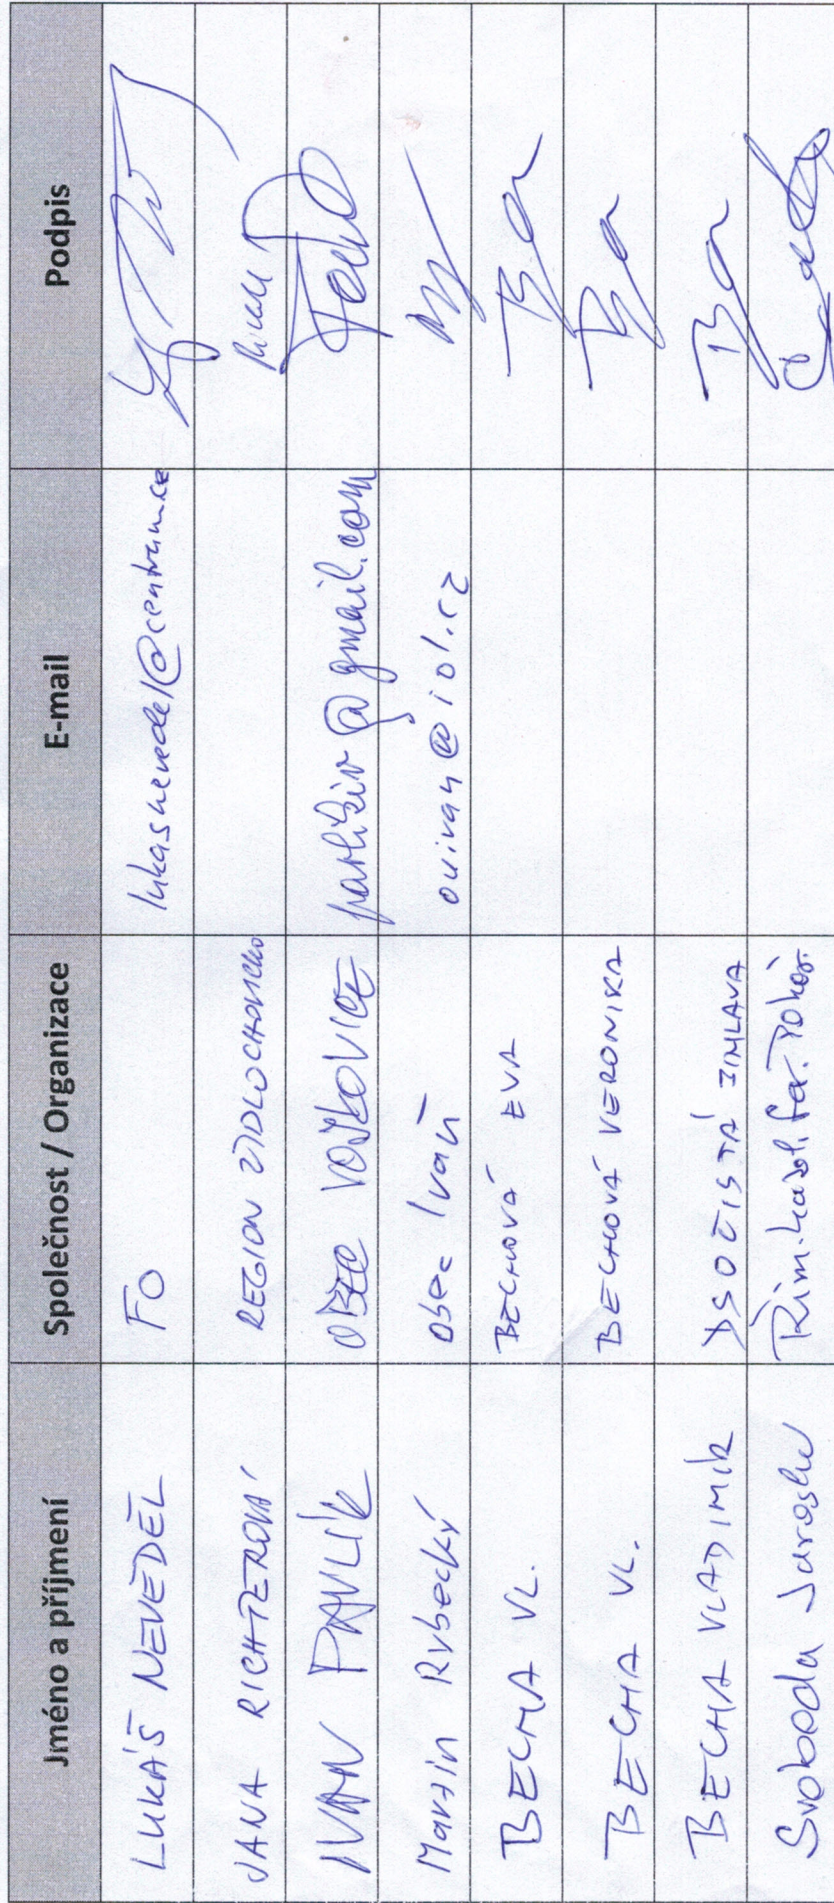 Jméno a příjmení Společnost / Organizace E-mail Podpis
LUKÁŠ NEVEDĚL FO lukasnevedel@centrum.cz
JANA RICHTEROVÁ REGION ŽIDLOCHOVICKO
IVAN PAVLÍK OBEC VOJKOVICE @gmail.com
Martin Rybecký obec Ivaň ouivan@iol.cz
BECHA VL. BECHOVÁ EVA
BECHA VL. BECHOVÁ VERONIKA
BECHA VLADIMÍR DSO ČISTÁ JIHLAVA
Svoboda Jaroslav Řím. katol. far. Pohoř.